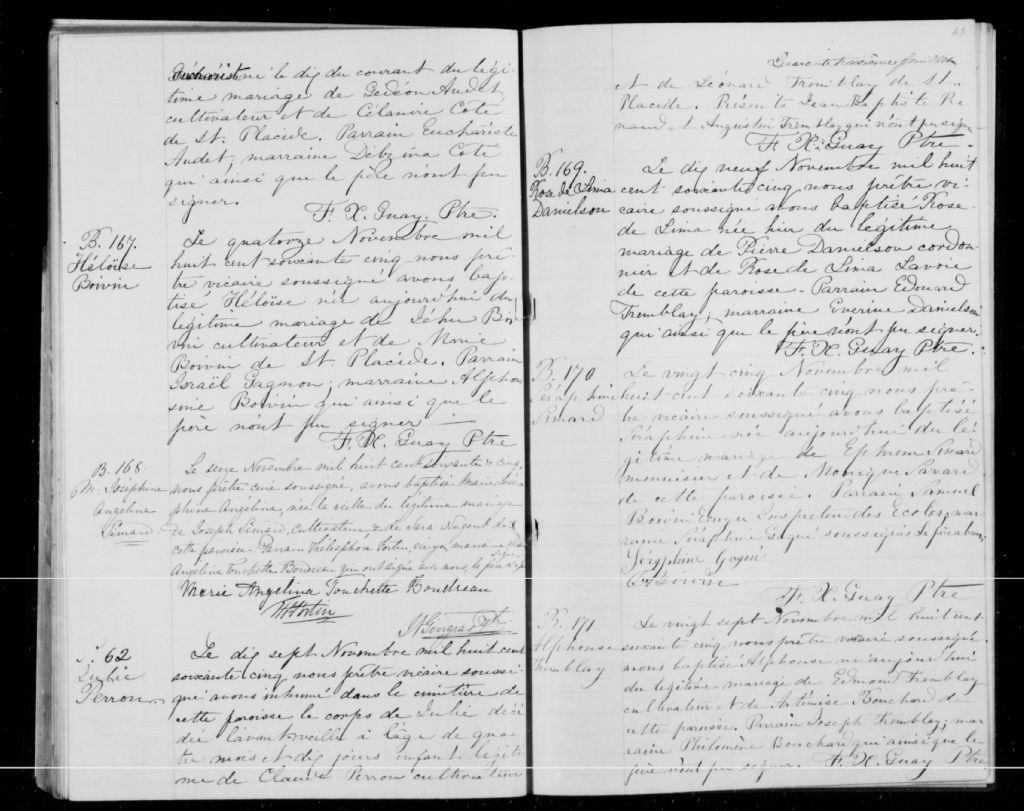 Euchariste né le dix du courant du légi-
time mariage de Gédéon Audet
cultivateur et de Célanire Coté
de St. Placide. Parrain Euchariste
Audet, marraine Coté
qui ainsi que le père nont pu
signer.
F. X. Guay. Ptre.
B. 167.
Héloïse
Boivin
Le quatorze Novembre mil
huit cent soixante cinq nous prê-
tre vicaire soussigné avons bap-
tisé Héloïse née aujourd'hui du
légitime mariage de Jéhu Boi-
vin cultivateur et de Marie
Boivin de St. Placide. Parrain
Israël Gagnon; marraine Alphon
sine Boivin qui ainsi que le
père nont pu signer
F. X. Guay Ptre
B. 168.
M. Joséphine
Angélina
Simard
Le seize Novembre mil huit cent soixante & cinq,
nous prêtre curé soussigné, avons baptisé Marie José-
phine Angélina, née la veille du légitime mariage
de Joseph Simard, cultivateur & de Sara Nugent de
cette paroisse. Parrain Thélesphore Fortin, marraine
Angelina Touchette Boudreau qui ont signé avec nous, le père
Marie Angelina Touchette Boudreau
Fortin
62
Julie
Perron
Le dix sept Novembre mil huit cent
soixante cinq nous prêtre vicaire soussi-
gné avons inhumé dans le cimetière de
cette paroisse le corps de Julie décé
dée lavant-veille à lâge de qua
tre mois et dix jours enfant légiti
me de Perron cultivateur
et de Léonard Tremblay de St.
Placide. Présents Jean Baptiste Re
naud et Augustin Tremblay qui n'ont pu signer
F. X. Guay Ptre.
B. 169.
Rose de Lima
Danielson
Le dix neuf Novembre mil huit
cent soixante cinq nous prêtre vi-
caire soussigné avons baptisé Rose
de Lima née hier du légitime
mariage de Pierre Danielson cordon
nier et de Rose de Lima Lavoie
de cette paroisse. Parrain Edouard
Tremblay; marraine Everine Danielson
qui ainsi que le père nont pu signer.
F. X. Guay Ptre.
B. 170
Séraphine
Simard
Le vingt cinq Novembre mil
huit cent soixante cinq nous prê-
tre vicaire soussigné avons baptisé
Séraphine née aujourd'hui du lé
gitime mariage de Ephrem Simard
menuisier et de Monique Simard
de cette paroisse. Parrain Samuel
Boivin Ecuyer Inspecteur des Ecoles, mar
raine Séraphine Gagné soussignés
Séraphine Gagné
Boivin
F. X. Guay Ptre
B. 171
Alphonse
Tremblay
Le vingt sept Novembre mil huit cent
soixante cinq nous prêtre vicaire soussigné
avons baptisé Alphonse né aujourd'hui
du légitime mariage de Edmond Tremblay
cultivateur et de Artémise Bouchard de
cette paroisse. Parrain Joseph Tremblay; mar
raine Philomène Bouchard qui ainsi que le
père n'ont pu signer. F. X. Guay Ptre